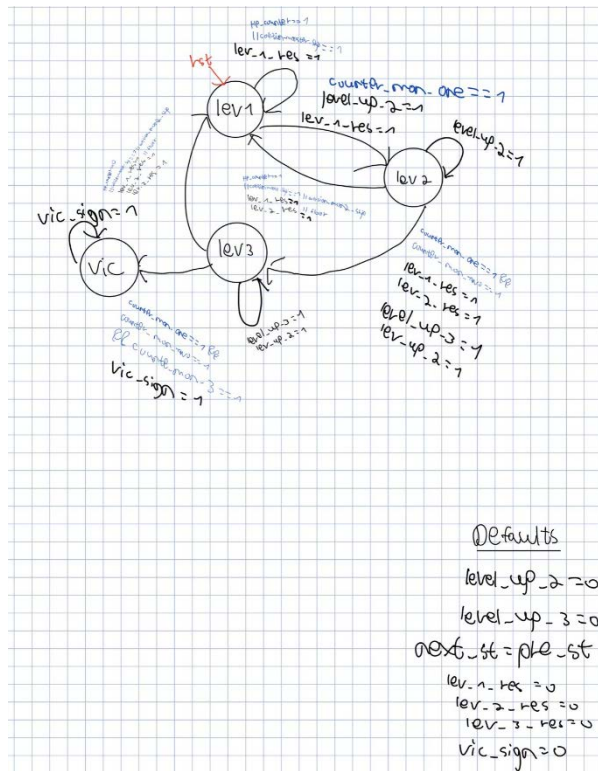 hp_counter==1
lev_1_res=1
rst
lev1
counter_mon_one==1
level_up_2=1
lev_1_res=1
level_up_2=1
lev2
vic_sign=1
lev_1_res=1
lev_2_res
=1
vic
lev3
counter_mon_one==1 &&
lev_1_res=1
lev_2_res=1
level_up_3=1
lev_up_2=1
level_up_3=1
lev_up_2=1
counter_mon_one==1 &&
&& counter_mon_3==1
vic_sign=1
Defaults
level_up_2=0
level_up_3=0
next_st=pre_st
lev_1_res=0
lev_2_res=0
lev_3_res=0
vic_sign=0